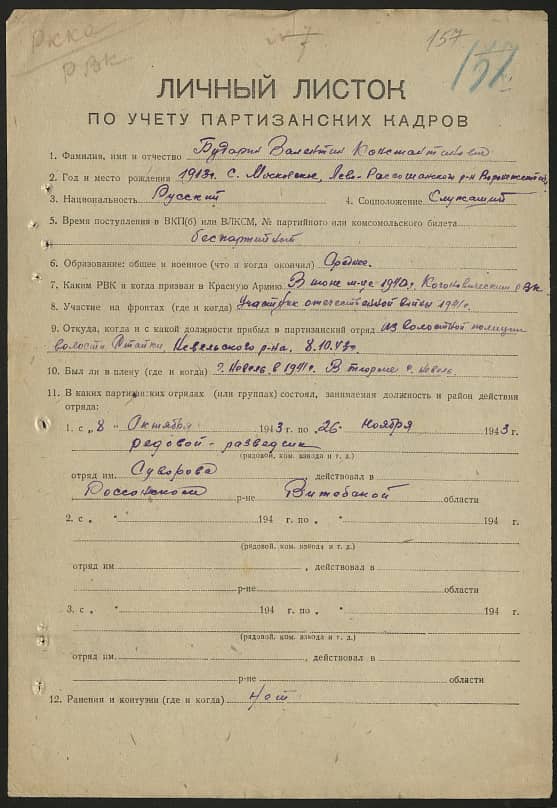 РККА
РВК
157
157
ЛИЧНЫЙ ЛИСТОК
ПО УЧЕТУ ПАРТИЗАНСКИХ КАДРОВ
1. Фамилия, имя и отчество Бударин Валентин Константинович
2. Год и место рождения 1913г. С. Московское, Лево-Россошанском р-н Воронежской
3. Национальность Русский 4. Соцположение Служащий
5. Время поступления в ВКП(б) или ВЛКСМ, № партийного или комсомольского билета
беспартийный
6. Образование: общее и военное (что и когда окончил) Среднее.
7. Каким РВК и когда призван в Красную Армию В июне м-це 1940г. РВК
8. Участие на фронтах (где и когда) Участник отечественной войны 1941г.
9. Откуда, когда и с какой должности прибыл в партизанский отряд из волостной полиции
волости Стайки, Невельского р-на. 8.10.43г.
10. Был ли в плену (где и когда) г. Невель в 1941г. В г. Невель.
11. В каких партизанских отрядах (или группах) состоял, занимаемая должность и район действия
отряда:
1. с „ 8 " Октября 1943 г. по „ 26 " Ноября 1943 г.
редовой-разведчик
(рядовой, ком. взвода и т. д.)
отряд им. Суворова действовал в
Россонском р-не Витебской области
2. с „ " 194 г. по „ " 194 г.
(рядовой, ком. взвода и т. д.)
отряд им , действовал в
р-не области
3. с „ " 194 г. по „ " 194 г.
(рядовой, ком. взвода и т. д.)
отряд им , действовал в
р-не области
12. Ранения и контузии (где и когда) Нет